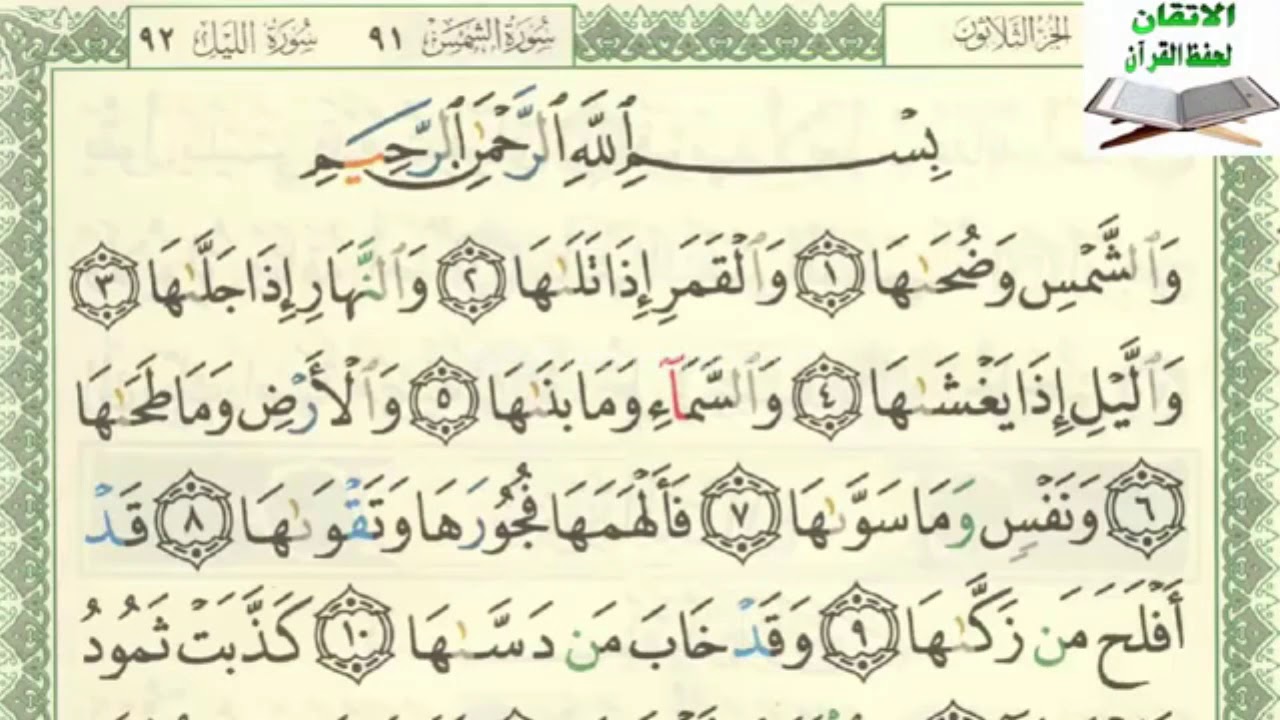 الجزء الثلاثون
سورة الشمس ٩١
سورة الليل ٩٢
الاتقان
لحفظ القرآن
بِسْمِ ٱللَّهِ ٱلرَّحْمَٰنِ ٱلرَّحِيمِ
وَٱلشَّمْسِ وَضُحَىٰهَا ١ وَٱلْقَمَرِ إِذَا تَلَىٰهَا ٢ وَٱلنَّهَارِ إِذَا جَلَّىٰهَا ٣
وَٱلَّيْلِ إِذَا يَغْشَىٰهَا ٤ وَٱلسَّمَآءِ وَمَا بَنَىٰهَا ٥ وَٱلْأَرْضِ وَمَا طَحَىٰهَا
٦ وَنَفْسٍ وَمَا سَوَّىٰهَا ٧ فَأَلْهَمَهَا فُجُورَهَا وَتَقْوَىٰهَا ٨ قَدْ
أَفْلَحَ مَن زَكَّىٰهَا ٩ وَقَدْ خَابَ مَن دَسَّىٰهَا ١٠ كَذَّبَتْ ثَمُودُ